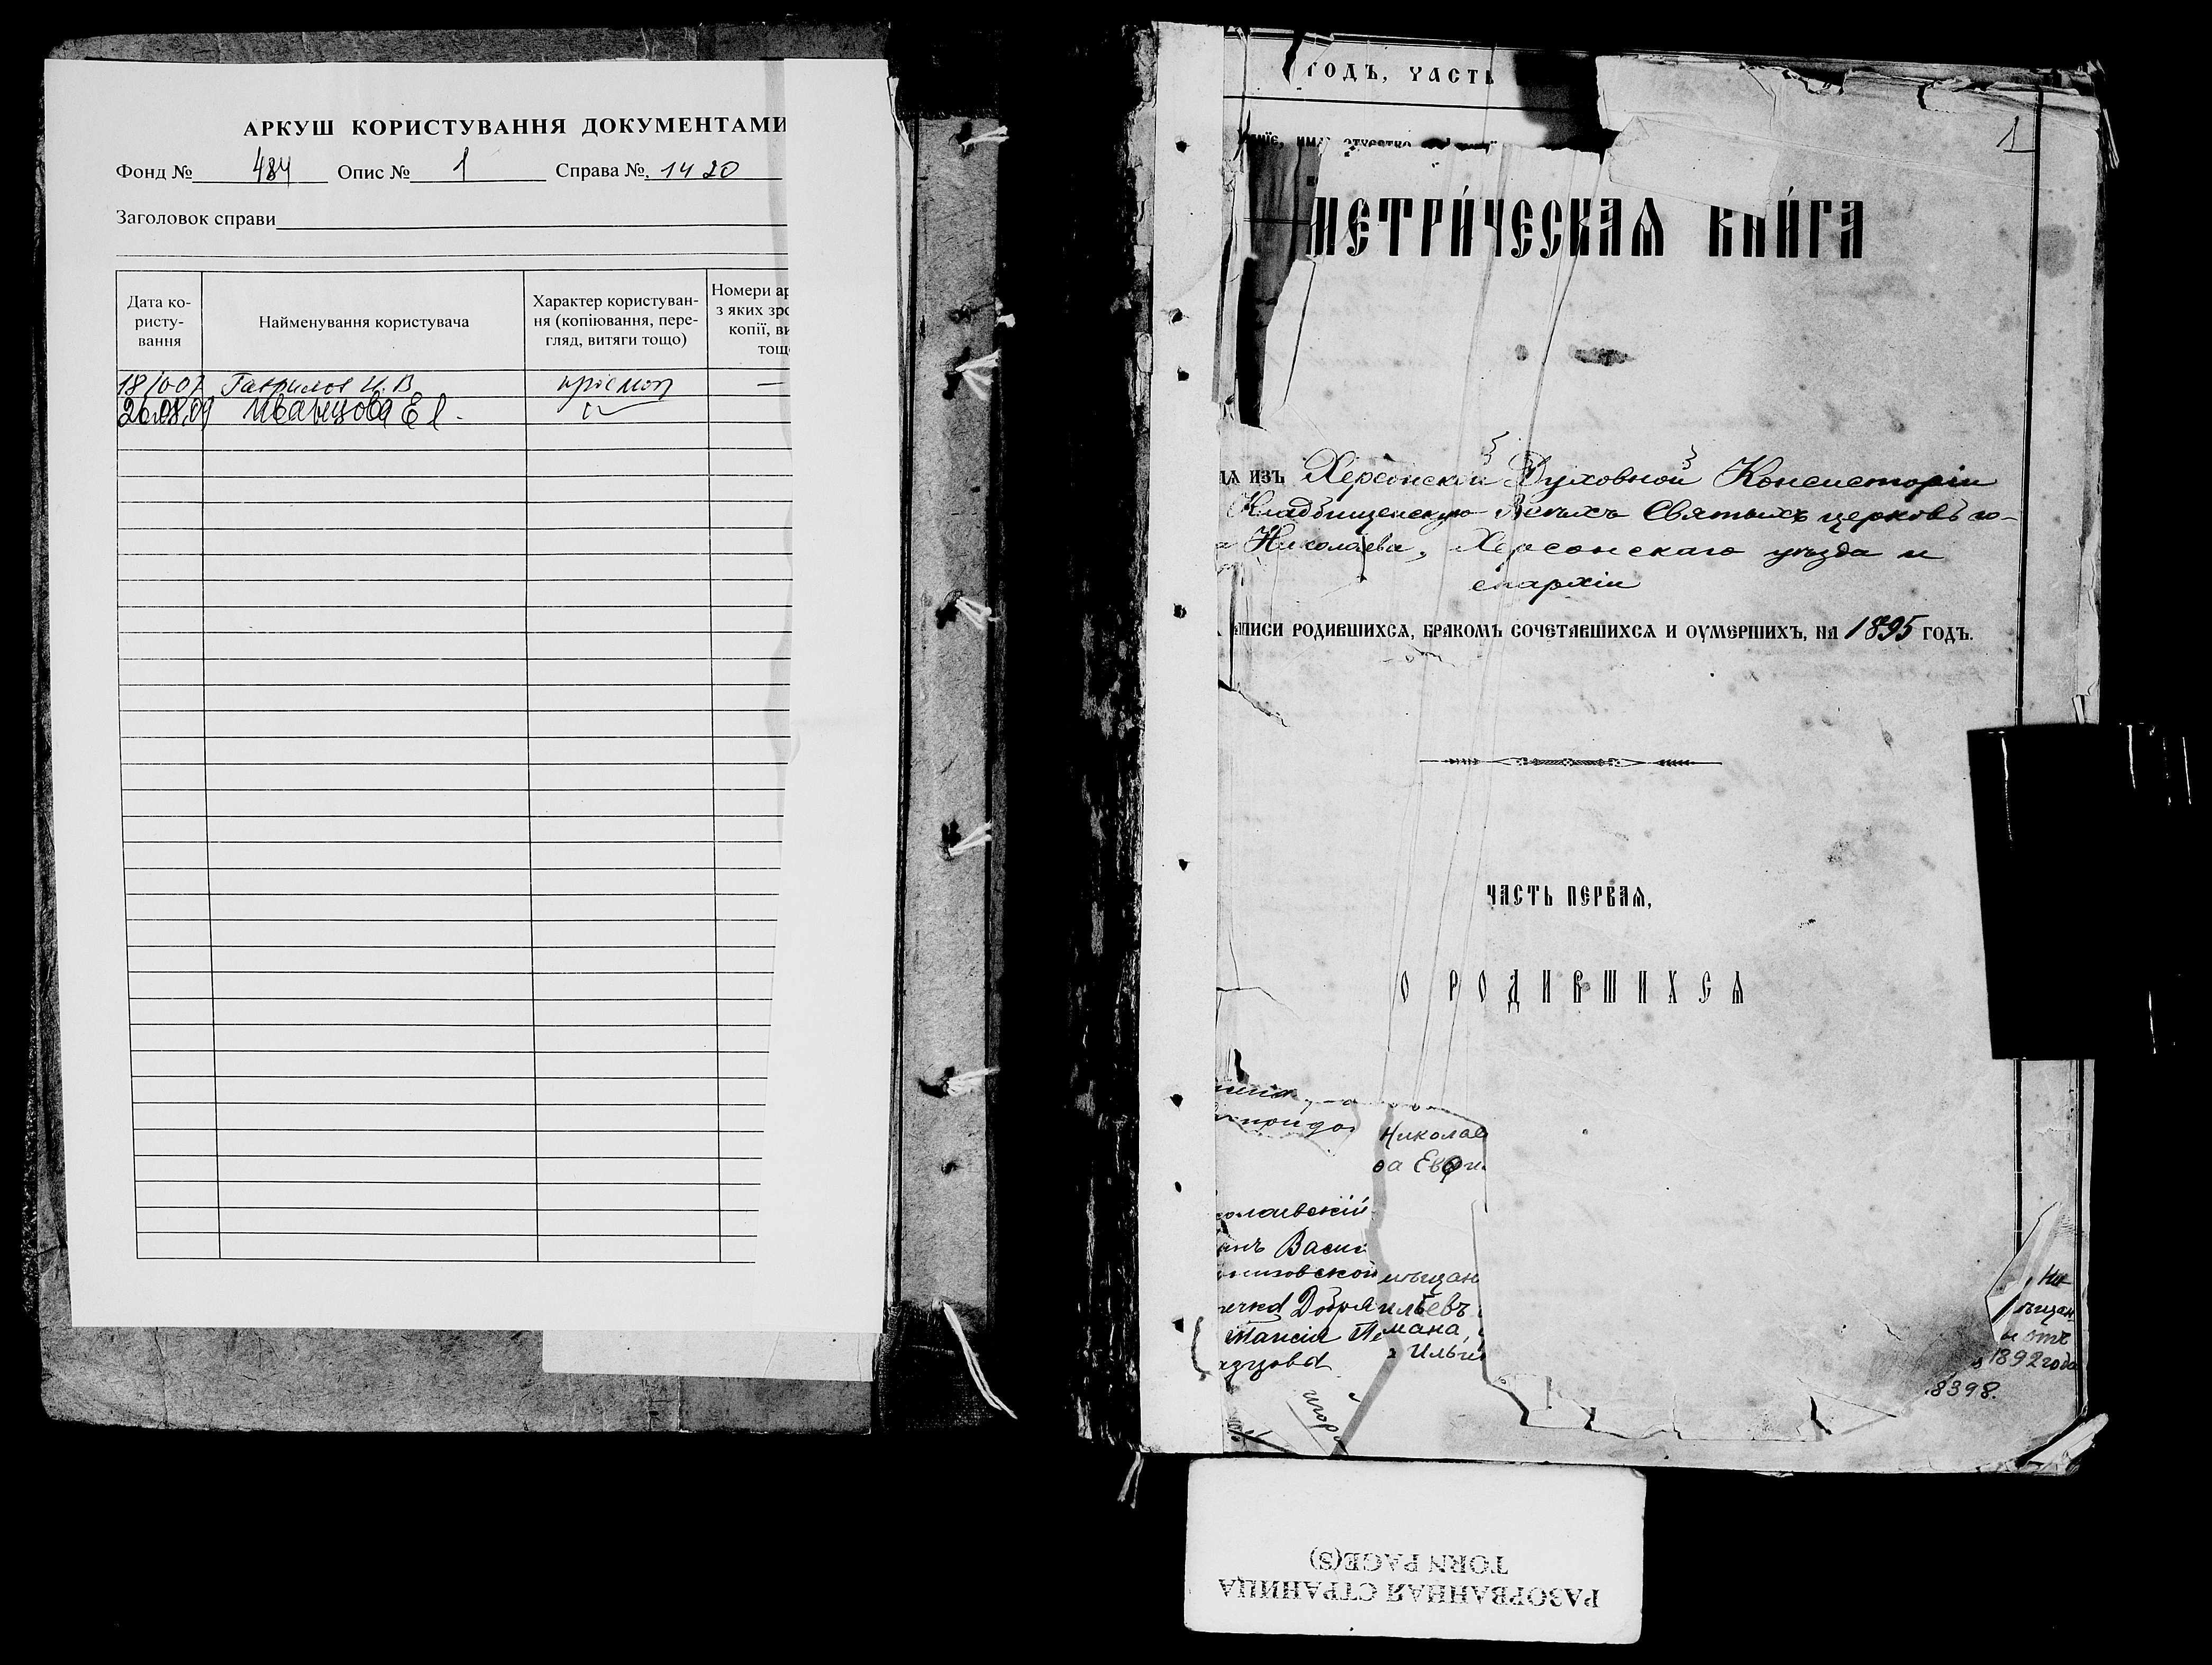 АРКУШ КОРИСТУВАННЯ ДОКУМЕНТАМИ
Фонд № 484 Опис № 1 Справа № 1420
Заголовок справи
Дата ко-
ристу-
вання
Найменування користувача
Характер користуван-
ня (копіювання, пере-
гляд, витяги тощо)
Номери ар
з яких зро
копії, ви
тощ
Гаврилов И. В. —
26.08.09 Иванцова Е
ГОДЪ, ЧАСТЬ
1
МЕТРИ́ЧЕСКАѦ КНИ́ГА
ИЗЪ Херсонской Духовной Консисторіи
Кладбищенскую Всѣхъ Святыхъ церковь го-
Николаева, Херсонскаго уѣзда и
епархіи
ПИСИ РОДИВШИХСѦ, БРАКОМЪ СОЧЕТАВШИХСѦ И ОУМЕРШИХЪ, НА 1895 ГОДЪ.
ЧАСТЬ ПЕРВАѦ,
О РОДИВШИХСѦ
Николаев
ва Евфи
олаевскій
анъ Васи
мѣщан
Добря ильевъ
мана,
Ильи
ѣщан
и отъ
1892 года
8398.
РАЗОРВАННАЯ СТРАНИЦА
TORN PAGE(S)